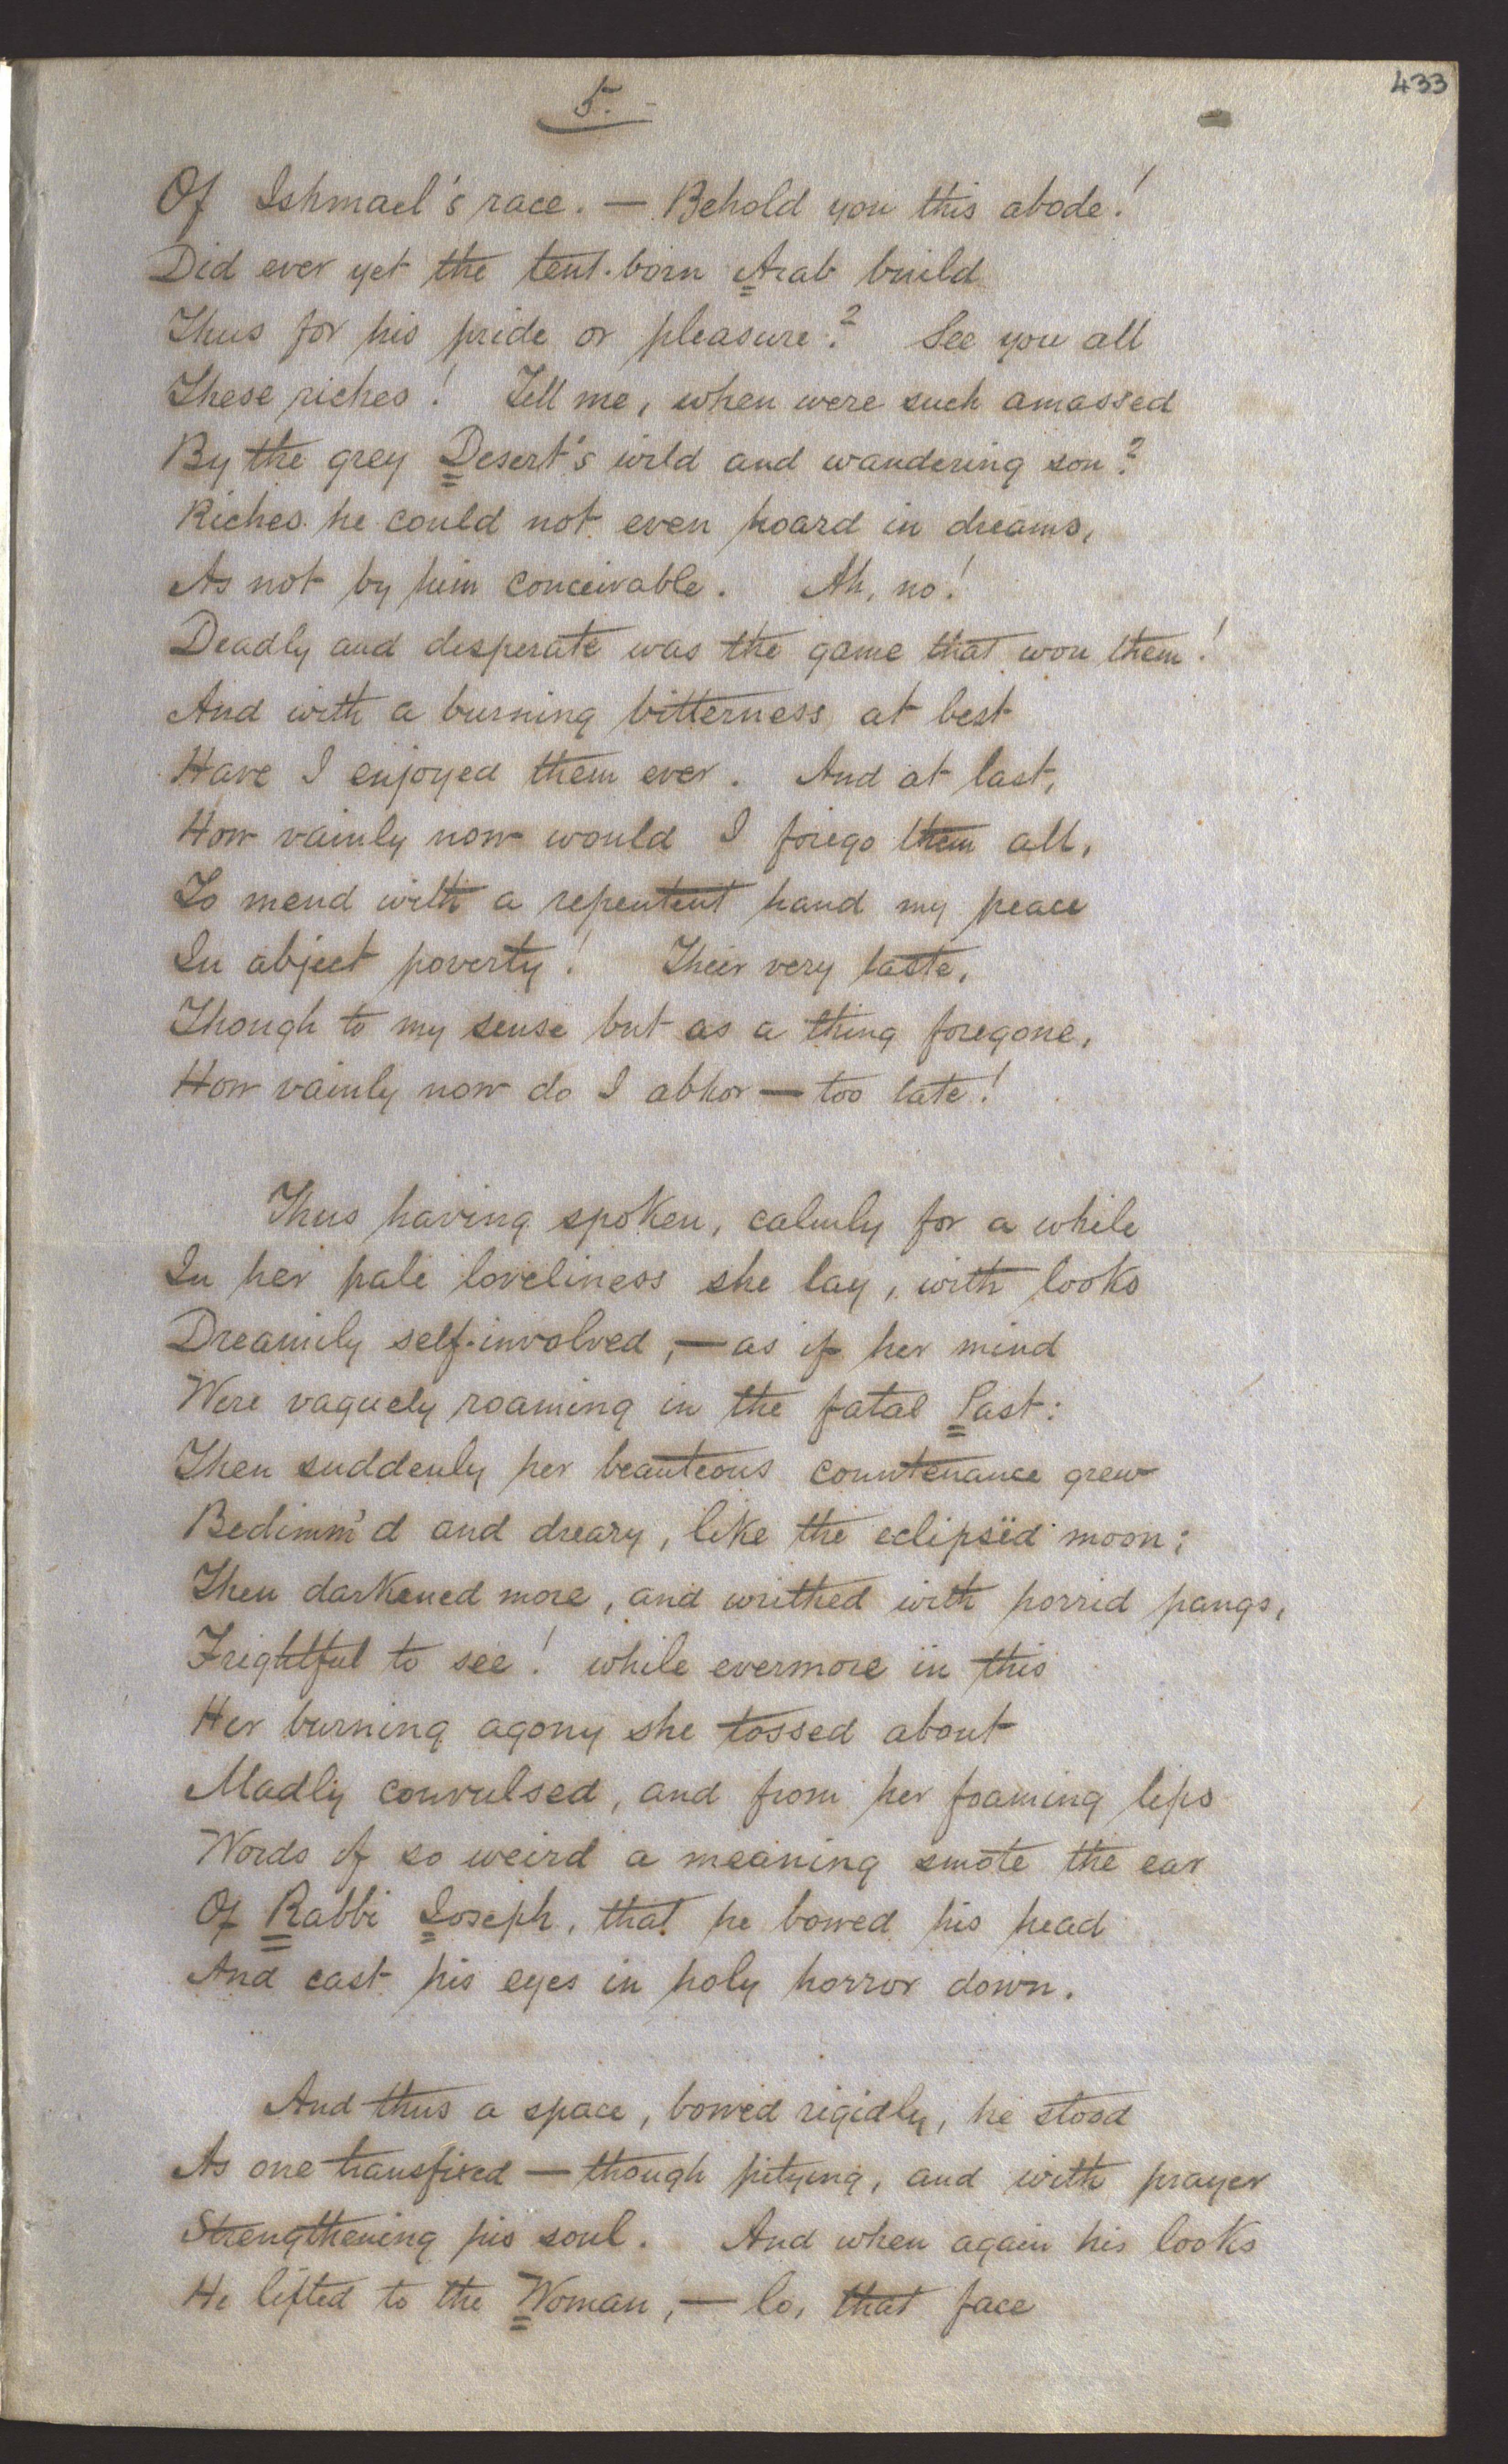 433
5.
Of Ishmael's race. — Behold you this abode!
Did ever yet the tent-born Arab build
Thus for his pride or pleasure? See you all
These riches! Tell me, when were such amassed
By the grey Desert's wild and wandering son?
Riches he could not even hoard in dreams,
As not by him conceivable. Ah, no!
Deadly and desperate was the game that won them!
And with a burning bitterness at best
Have I enjoyed them ever. And at last,
How vainly now would I forego them all,
To mend with a repentent hand my peace
In abject poverty! Their very taste,
Though to my sense but as a thing foregone,
How vainly now do I abhor — too late!
Thus having spoken, calmly for a while
In her pale loveliness she lay, with looks
Dreamily self-involved, — as if her mind
Were vaguely roaming in the fatal Past:
Then suddenly her beauteous countenance grew
Bedimm'd and dreary, like the eclipsëd moon;
Then darkened more, and writhed with horrid pangs,
Frightful to see! while evermore in this
Her burning agony she tossed about
Madly convulsed, and from her foaming lips
Words of so weird a meaning smote the ear
Of Rabbi Joseph, that he bowed his head
And cast his eyes in holy horror down.
And thus a space, bowed rigidly, he stood
As one transfixed — though pitying, and with prayer
Strengthening his soul. And when again his looks
He lifted to the Woman, — lo, that face